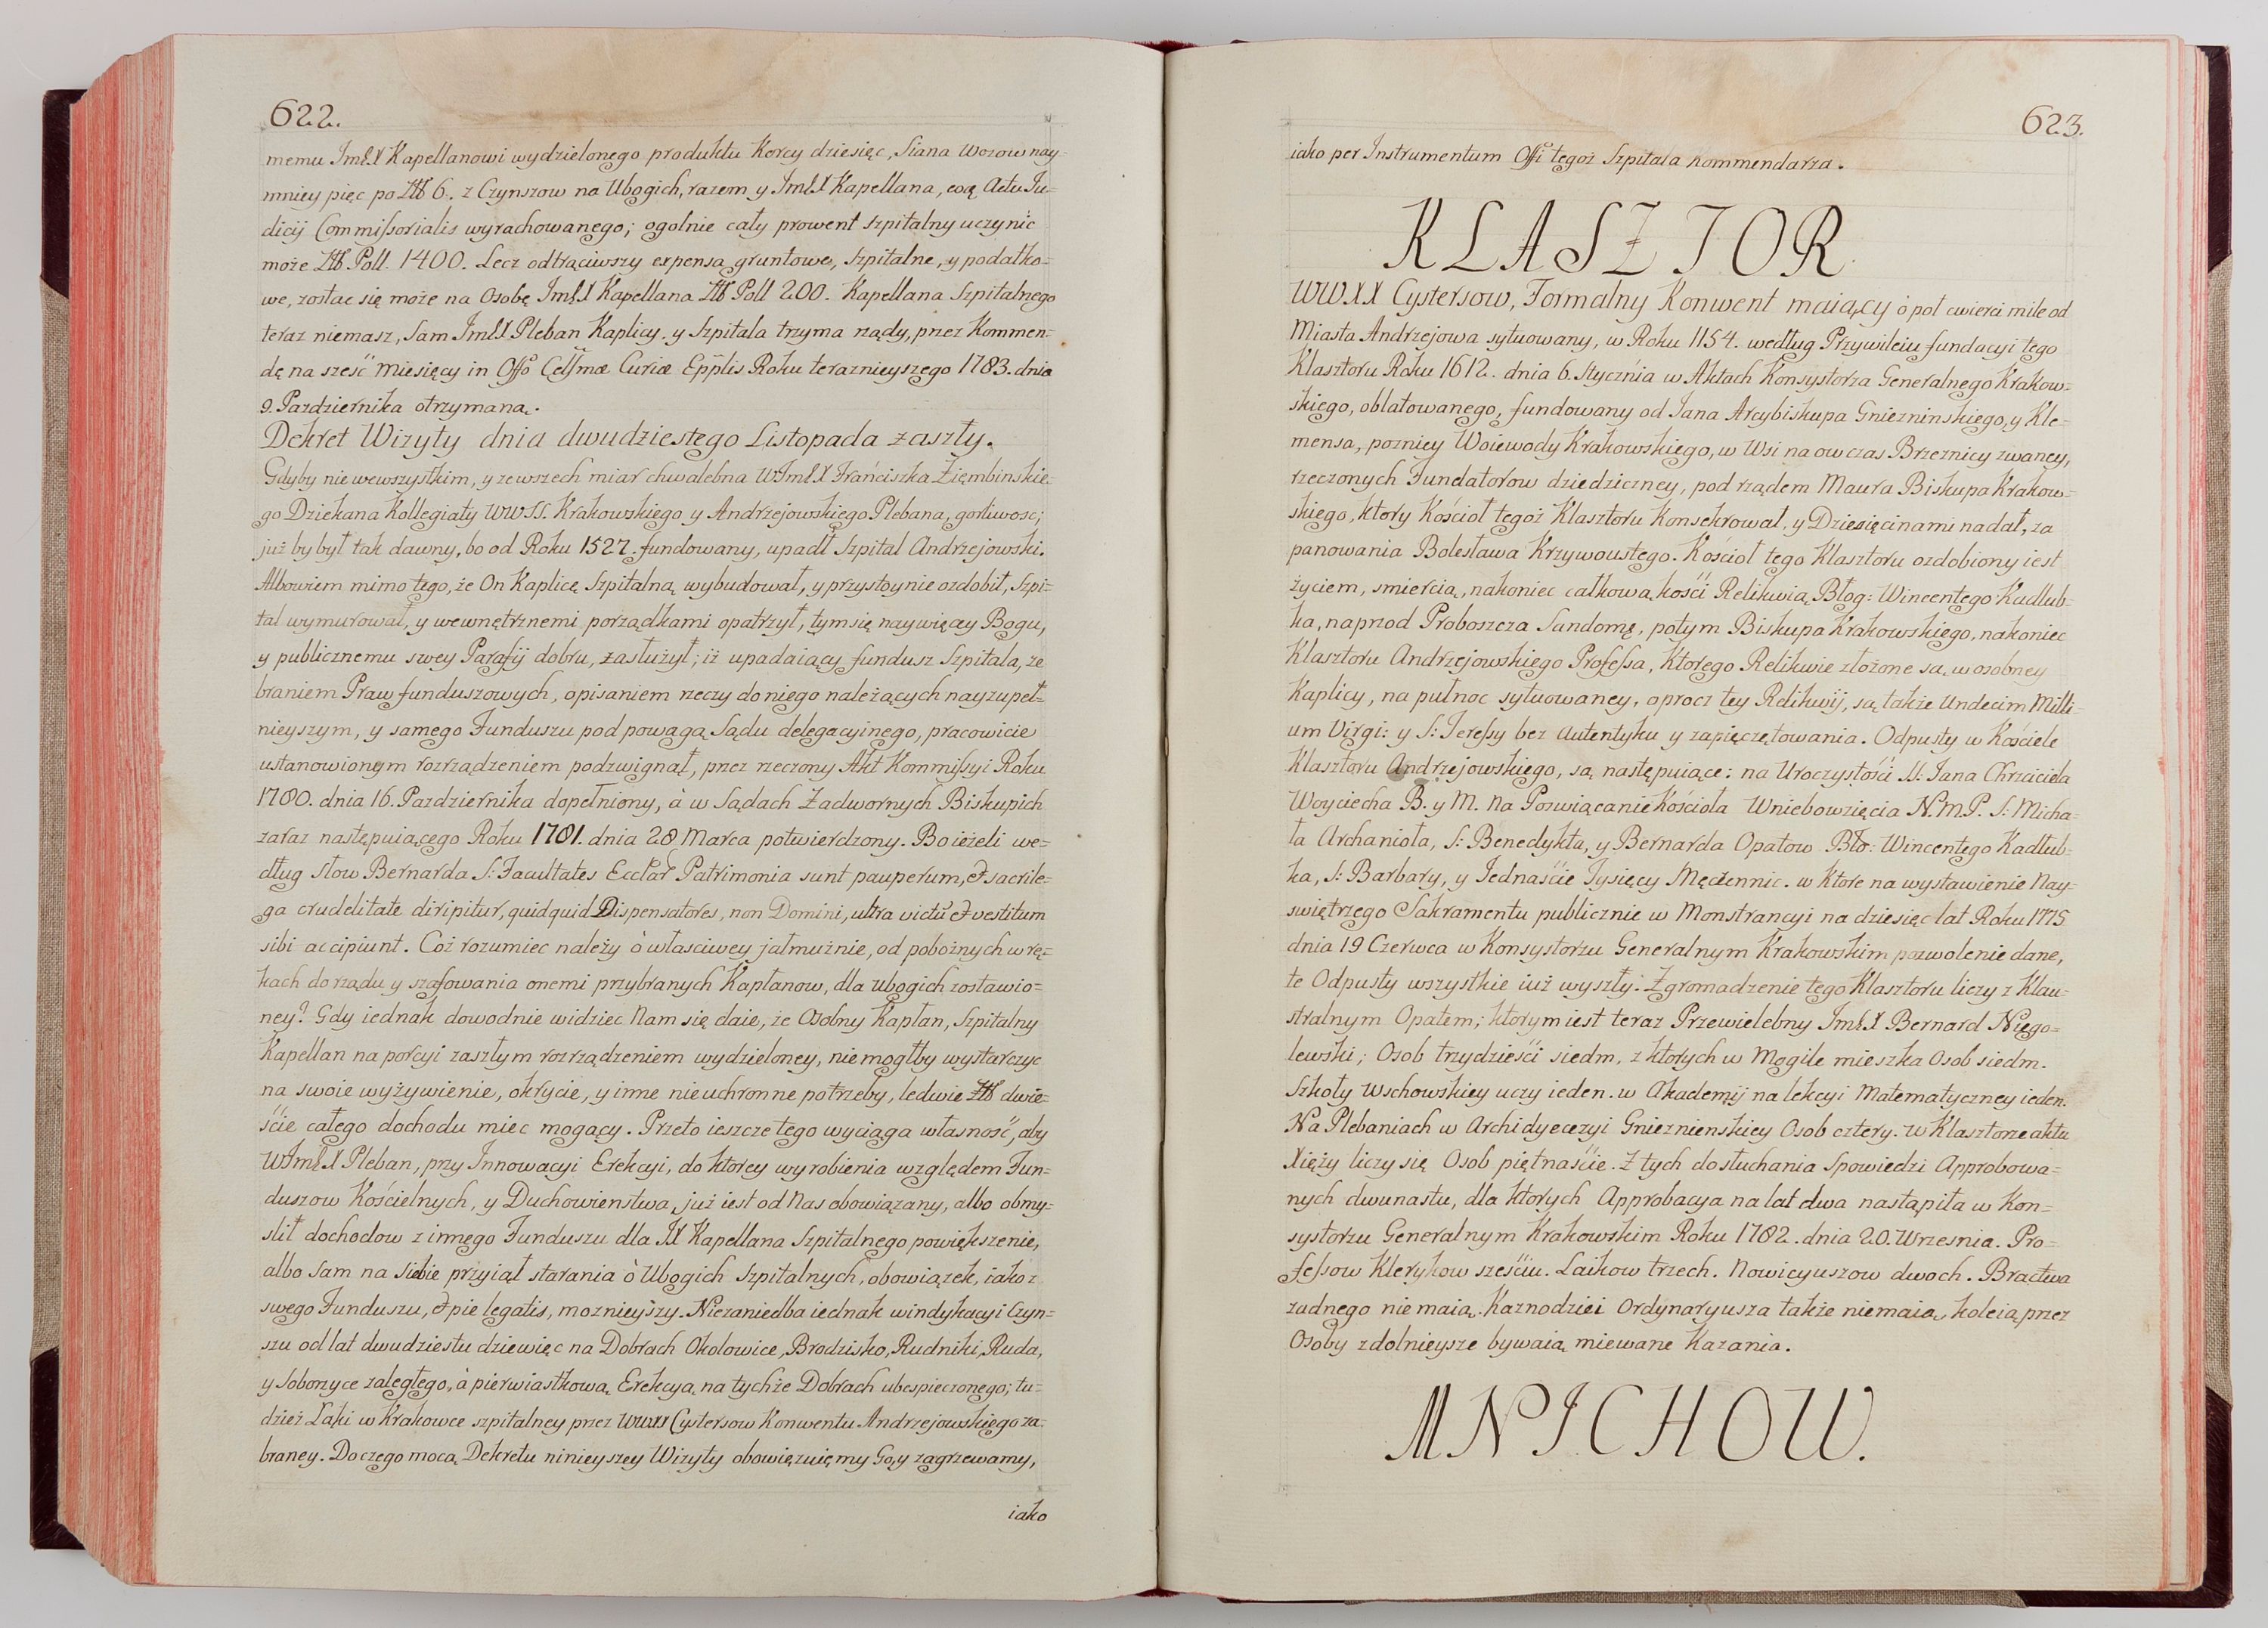 622.
memu ImX Kapellanowi wydzielonego produktu Korcy dziesięc, Siana Wozow nay-
mniey pięc po Złł 6. z Czynszow na Ubogich, razem y ImX Kapellana, Actu Iu-
dicij Commissorialis wyrachowanego; ogolnie cały prowent szpitalny uczynić
może Złł Poll. 1400. Lecz odtrąciwszy expensa gruntowe, Szpitalne, y podatko-
we, zostac się może na Osobę ImX Kapellana Złł Poll 200. Kapellana Szpitalnego
teraz niemasz, Sam ImX Pleban Kaplicy y Szpitala trzyma rządy, przez Kommen-
dę na sześć miesięcy in Offo Celsmæ Curiæ Epplis Roku teraznieyszego 1783. dnia
9. Pazdziernika otrzymaną.
Dekret Wizyty dnia dwudziestego Listopada zaszły.
Gdyby nie wewszystkim, y zewszech miar chwalebna WImX Franćiszka Ziembinskie-
go Dziekana Kollegiaty WWSS. Krakowskiego y Andrzejowskiego Plebana, gorliwosc;
już by był tak dawny, bo od Roku 1527. fundowany, upadł Szpital Andrzejowski.
Albowiem mimo tego, że On Kaplicę Szpitalną wybudował, y przystoynie ozdobił, Szpi-
tal wymurował, y wewnętrznemi porządkami opatrzył, tym się naywięcy Bogu,
y publicznemu swey Parafij dobru, zasłużył; iż upadaiący fundusz Szpitala, ze
braniem Praw funduszowych, opisaniem rzeczy do niego należących nayzupeł-
nieyszym, y samego Funduszu pod powagą Sądu delegacyinego, pracowicie
ustanowionym rozrządzeniem podzwignął, przez rzeczony Akt Kommissyi Roku
1780. dnia 16. Pazdziernika dopełniony, à w Sądach Zadwornych Biskupich
zaraz następuiącego Roku 1781. dnia 28 Marca potwierdzony. Bo ieżeli we-
dług słow Bernarda S: Facultates Ecclar Patrimonia sunt pauperum, & sacrile-
ga crudelitate diripitur, quidquid Dispensatores, non Domini, ultra victũ & vestitum
sibi accipiunt. Coż rozumiec należy ò własciwey jałmużnie, od pobożnych w rę-
kach do rządu y szafowania onemi przybranych Kapłanow, dla ubogich zostawio-
ney? Gdy iednak dowodnie widziec Nam się daie, że Osobny Kapłan, Szpitalny
Kapellan na porcyi zaszłym rozrządzeniem wydzieloney, niemogłby wystarczyc
na swoie wyżywienie, okrycie, y inne nieuchronne potrzeby, ledwie Złł dwie-
ście całego dochodu miec mogący. Przeto ieszcze tego wyciąga własność, aby
WImX Pleban, przy Innowacyi Erekcyi, do ktorey wyrobienia względem Fun-
duszow Kościelnych, y Duchowienstwa, już iest od Nas obowiązany, albo obmy-
slił dochodow z innego Funduszu dla IX Kapellana Szpitalnego powiększenie,
albo sam na siebie przyiął starania ò Ubogich szpitalnych, obowiązek, iako z
swego Funduszu, & pie legatis, moznieyszy. Niezaniedba iednak windykacyi Czyn-
szu od lat dwudziestu dziewięc na Dobrach Okolowice, Brodzisko, Rudniki, Ruda,
y Soborzyce zaległego, à pierwiastkową Erekcyą na tychże Dobrach ubespieczonego; tu-
dzież Łąki w Krakowce szpitalney przez WWXX Cystersow Konwentu Andrzejowskiego za-
braney. Do czego mocą Dekretu ninieyszey Wizyty obowięzuięmy Go, y zagrzewamy,
iako
623.
iako per Instrumentum Offi tegoż Szpitala Kommendarza.
KLASZTOR
WWXX Cystersow, Formalny Konwent maiący ò poł cwierci mile od
Miasta Andrzejowa sytuowany, w Roku 1154. według Przywileiu fundacyi tego
Klasztoru Roku 1612. dnia 6. Stycznia w Aktach Konsystorza Generalnego Krakow-
skiego, oblatowanego, fundowany od Jana Arcybiskupa Gnieznińskiego, y Kle-
mensa, pozniey Woiewody Krakowskiego, w Wsi na ow czas Brzeznicy zwaney,
rzeczonych Fundatorow dziedziczney, pod rządem Maura Biskupa Krakow-
skiego, ktory Kościoł tegoż Klasztoru Konsekrował, y Dziesięcinami nadał, za
panowania Bolesława Krzywoustego. Kościoł tego Klasztoru ozdobiony iest
życiem, smiercią, nakoniec całkową kości Relikwią Błog: Wincentego Kadłub-
ka, naprzod Proboszcza Sandomę, potym Biskupa Krakowskiego, nakoniec
Klasztoru Andrzejowskiego Professa, Ktorego Relikwie złożone są w osobney
Kaplicy, na pułnoc sytuowaney, oprocz tey Relikwij, są także Undecim Milli-
um Virgi: y S: Teressy bez Autentyku y zapięczętowania. Odpusty w Kościele
Klasztoru Andrzejowskiego, są następuiące: na Uroczystości SS: Jana Chrzciciela
Woyciecha B. y M. na Poswiącanie Kościoła Wniebowzięcia N.M.P. S: Micha-
ła Archanioła, S: Benedykta, y Bernarda Opatow Bło: Wincentego Kadłub-
ka, S: Barbary, y Jednaście Tysięcy Męczennic. w Ktore na wystawienie Nay-
swiętrzego Sakramentu publicznie w Monstrancyi na dziesięc lat Roku 1775
dnia 19 Czerwca w Konsystorzu Generalnym Krakowskim pozwolenie dane,
te Odpusty wszystkie iuż wyszły. Zgromadzenie tego Klasztoru liczy z Klau-
stralnym Opatem; ktorym iest teraz Przewielebny ImX Bernard Niego-
lewski; Osob trzydzieści siedm, z ktorych w Mogile mieszka Osob siedm.
Szkoły Wschowskiey uczy ieden. w Akademij na lekcyi Matematyczney ieden.
Na Plebaniach w Archidyecezyi Gnieznienskiey Osob cztery. W Klasztorze aktu
Xięży liczy się Osob piętnaście. Z tych do słuchania Spowiedzi Approbowa-
nych dwunastu, dla ktorych Approbacya na lat dwa nastąpiła w Kon-
systorzu Generalnym Krakowskim Roku 1782. dnia 20. Wrzesnia. Pro-
fessow Klerykow sześciu. Laikow trzech. Nowicyuszow dwoch. Bractwa
zadnego niemaią. Kaznodziei Ordynaryusza także niemaią, koleią przez
Osoby zdolnieysze bywaią miewane Kazania.
MNICHOW.